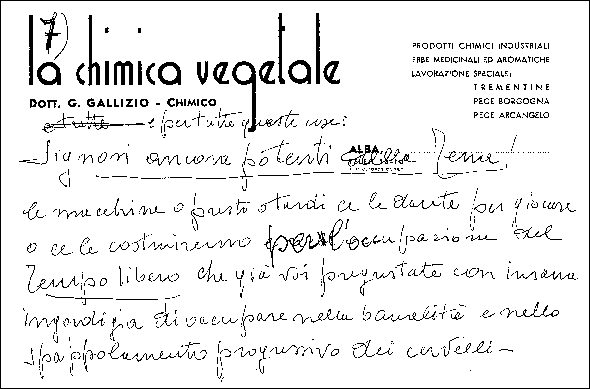 7)
la chimica vegetale
DOTT. G. GALLIZIO - CHIMICO
PRODOTTI CHIMICI INDUSTRIALI
ERBE MEDICINALI ED AROMATICHE
LAVORAZIONE SPECIALE:
TREMENTINE
PECE BORGOGNA
PECE ARCANGELO
e per tutte queste cose:
ALBA
Signori ancora potenti della Terra!
le macchine o presto o tardi ce le darete per giocare
o ce le costruiremo per l'occupazione del
Tempo libero che già voi pregustate con insana
ingordigia di occupare nella banalità e nello
spappolamento progressivo dei cervelli -